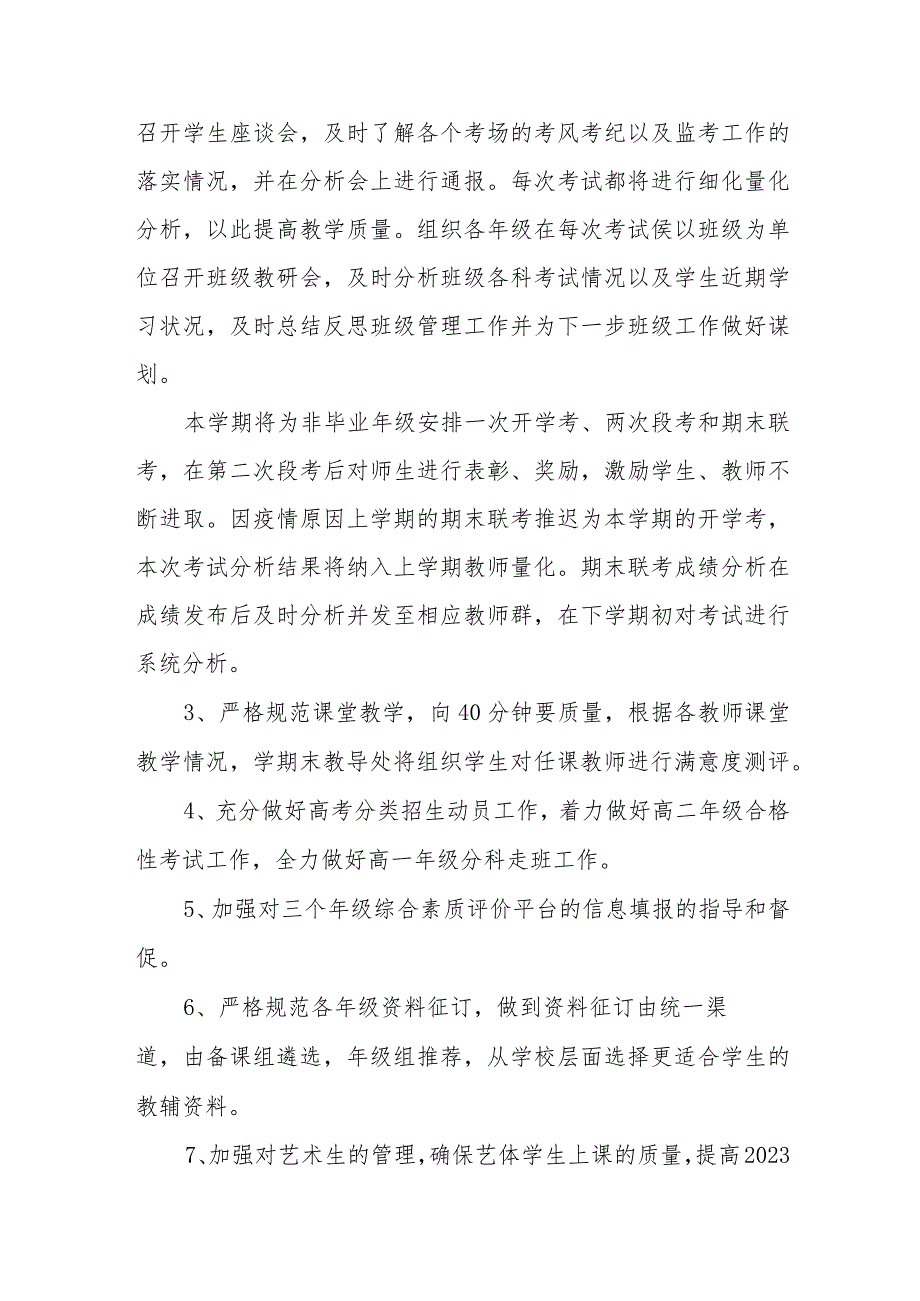 召开学生座谈会，及时了解各个考场的考风考纪以及监考工作的
落实情况，并在分析会上进行通报。每次考试都将进行细化量化
分析，以此提高教学质量。组织各年级在每次考试侯以班级为单
位召开班级教研会，及时分析班级各科考试情况以及学生近期学
习状况，及时总结反思班级管理工作并为下一步班级工作做好谋
划。
本学期将为非毕业年级安排一次开学考、两次段考和期末联
考，在第二次段考后对师生进行表彰、奖励，激励学生、教师不
断进取。因疫情原因上学期的期末联考推迟为本学期的开学考，
本次考试分析结果将纳入上学期教师量化。期末联考成绩分析在
成绩发布后及时分析并发至相应教师群，在下学期初对考试进行
系统分析。
3、严格规范课堂教学，向 40 分钟要质量，根据各教师课堂
教学情况，学期末教导处将组织学生对任课教师进行满意度测评。
4、充分做好高考分类招生动员工作，着力做好高二年级合格
性考试工作，全力做好高一年级分科走班工作。
5、加强对三个年级综合素质评价平台的信息填报的指导和督
促。
6、严格规范各年级资料征订，做到资料征订由统一渠
道，由备课组遴选，年级组推荐，从学校层面选择更适合学生的
教辅资料。
7、加强对艺术生的管理，确保艺体学生上课的质量，提高 2023